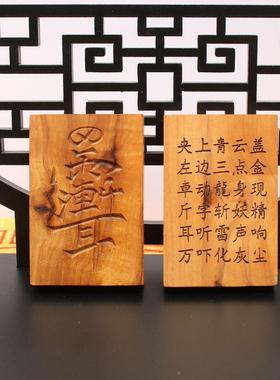 夹上青云盖
左边三点金
卓动龍身现
斤字斩妖精
耳听雷声响
万吓化灰尘